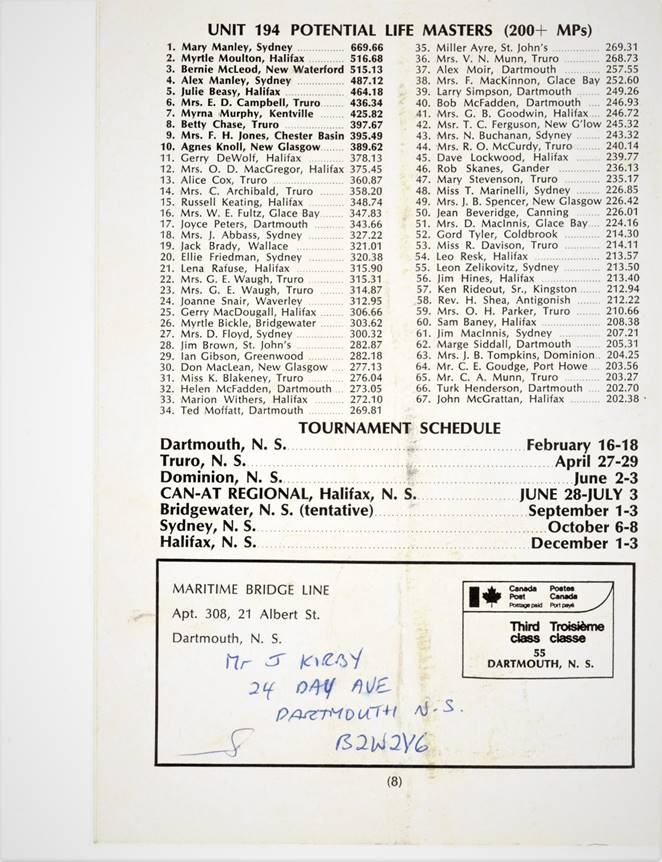 UNIT 194 POTENTIAL LIFE MASTERS (200+ MPs)
1. Mary Manley, Sydney ............... 669.66
2. Myrtle Moulton, Halifax ........... 516.68
3. Bernie McLeod, New Waterford 515.13
4. Alex Manley, Sydney ............... 487.12
5. Julie Beasy, Halifax ............... 464.18
6. Mrs. E. D. Campbell, Truro ........ 436.34
7. Myrna Murphy, Kentville .......... 425.82
8. Betty Chase, Truro ................ 397.67
9. Mrs. F. H. Jones, Chester Basin 395.49
10. Agnes Knoll, New Glasgow ........ 389.62
11. Gerry DeWolf, Halifax ............ 378.13
12. Mrs. O. D. MacGregor, Halifax 375.45
13. Alice Cox, Truro .................. 360.87
14. Mrs. C. Archibald, Truro ......... 358.20
15. Russell Keating, Halifax ......... 348.74
16. Mrs. W. E. Fultz, Glace Bay ...... 347.83
17. Joyce Peters, Dartmouth .......... 343.66
18. Mrs. J. Abbass, Sydney ........... 327.22
19. Jack Brady, Wallace .............. 321.01
20. Ellie Friedman, Sydney ........... 320.38
21. Lena Rafuse, Halifax ............. 315.90
22. Mrs. G. E. Waugh, Truro .......... 315.31
23. Mrs. G. E. Waugh, Truro .......... 314.87
24. Joanne Snair, Waverley ........... 312.95
25. Gerry MacDougall, Halifax ........ 306.66
26. Myrtle Bickle, Bridgewater ....... 303.62
27. Mrs. D. Floyd, Sydney ............ 300.32
28. Jim Brown, St. John's ............ 282.87
29. Ian Gibson, Greenwood ............ 282.18
30. Don MacLean, New Glasgow ......... 277.13
31. Miss K. Blakeney, Truro .......... 276.04
32. Helen McFadden, Dartmouth ........ 273.05
33. Marion Withers, Halifax .......... 272.10
34. Ted Moffatt, Dartmouth ........... 269.81
35. Miller Ayre, St. John's .......... 269.31
36. Mrs. V. N. Munn, Truro ........... 268.73
37. Alex Moir, Dartmouth ............. 257.55
38. Mrs. F. MacKinnon, Glace Bay 252.60
39. Larry Simpson, Dartmouth ......... 249.26
40. Bob McFadden, Dartmouth .......... 246.93
41. Mrs. G. B. Goodwin, Halifax ...... 246.72
42. Msr. T. C. Ferguson, New G'low 245.32
43. Mrs. N. Buchanan, Sdyney ......... 243.32
44. Mrs. R. O. McCurdy, Truro ........ 240.14
45. Dave Lockwood, Halifax ........... 239.77
46. Rob Skanes, Gander ............... 236.13
47. Mary Stevenson, Truro ............ 235.17
48. Miss T. Marinelli, Sydney ........ 226.85
49. Mrs. J. B. Spencer, New Glasgow 226.42
50. Jean Beveridge, Canning .......... 226.01
51. Mrs. D. MacInnis, Glace Bay .... 224.16
52. Gord Tyler, Coldbrook ............ 214.30
53. Miss R. Davison, Truro ........... 214.11
54. Leo Resk, Halifax ................ 213.57
55. Leon Zelikovitz, Sydney .......... 213.50
56. Jim Hines, Halifax ............... 213.40
57. Ken Rideout, Sr., Kingston ....... 212.94
58. Rev. H. Shea, Antigonish ......... 212.22
59. Mrs. O. H. Parker, Truro ......... 210.66
60. Sam Baney, Halifax ............... 208.38
61. Jim MacInnis, Sydney ............. 207.21
62. Marge Siddall, Dartmouth ......... 205.31
63. Mrs. J. B. Tompkins, Dominion.. 204.25
64. Mr. C. E. Goudge, Port Howe .... 203.56
65. Mr. C. A. Munn, Truro ............ 203.27
66. Turk Henderson, Dartmouth ........ 202.70
67. John McGrattan, Halifax .......... 202.38
TOURNAMENT SCHEDULE
Dartmouth, N. S. ............... February 16-18
Truro, N. S. ............... April 27-29
Dominion, N. S. ............... June 2-3
CAN-AT REGIONAL, Halifax, N. S. ............... JUNE 28-JULY 3
Bridgewater, N. S. (tentative) ............... September 1-3
Sydney, N. S. ............... October 6-8
Halifax, N. S. ............... December 1-3
MARITIME BRIDGE LINE
Apt. 308, 21 Albert St.
Dartmouth, N. S.
Canada Postes
Post Canada
Postage paid Port payé
Third Troisième
class classe
55
DARTMOUTH, N. S.
Mr J KIRBY
24 DAY AVE
DARTMOUTH N.S.
B2W2V6
(8)